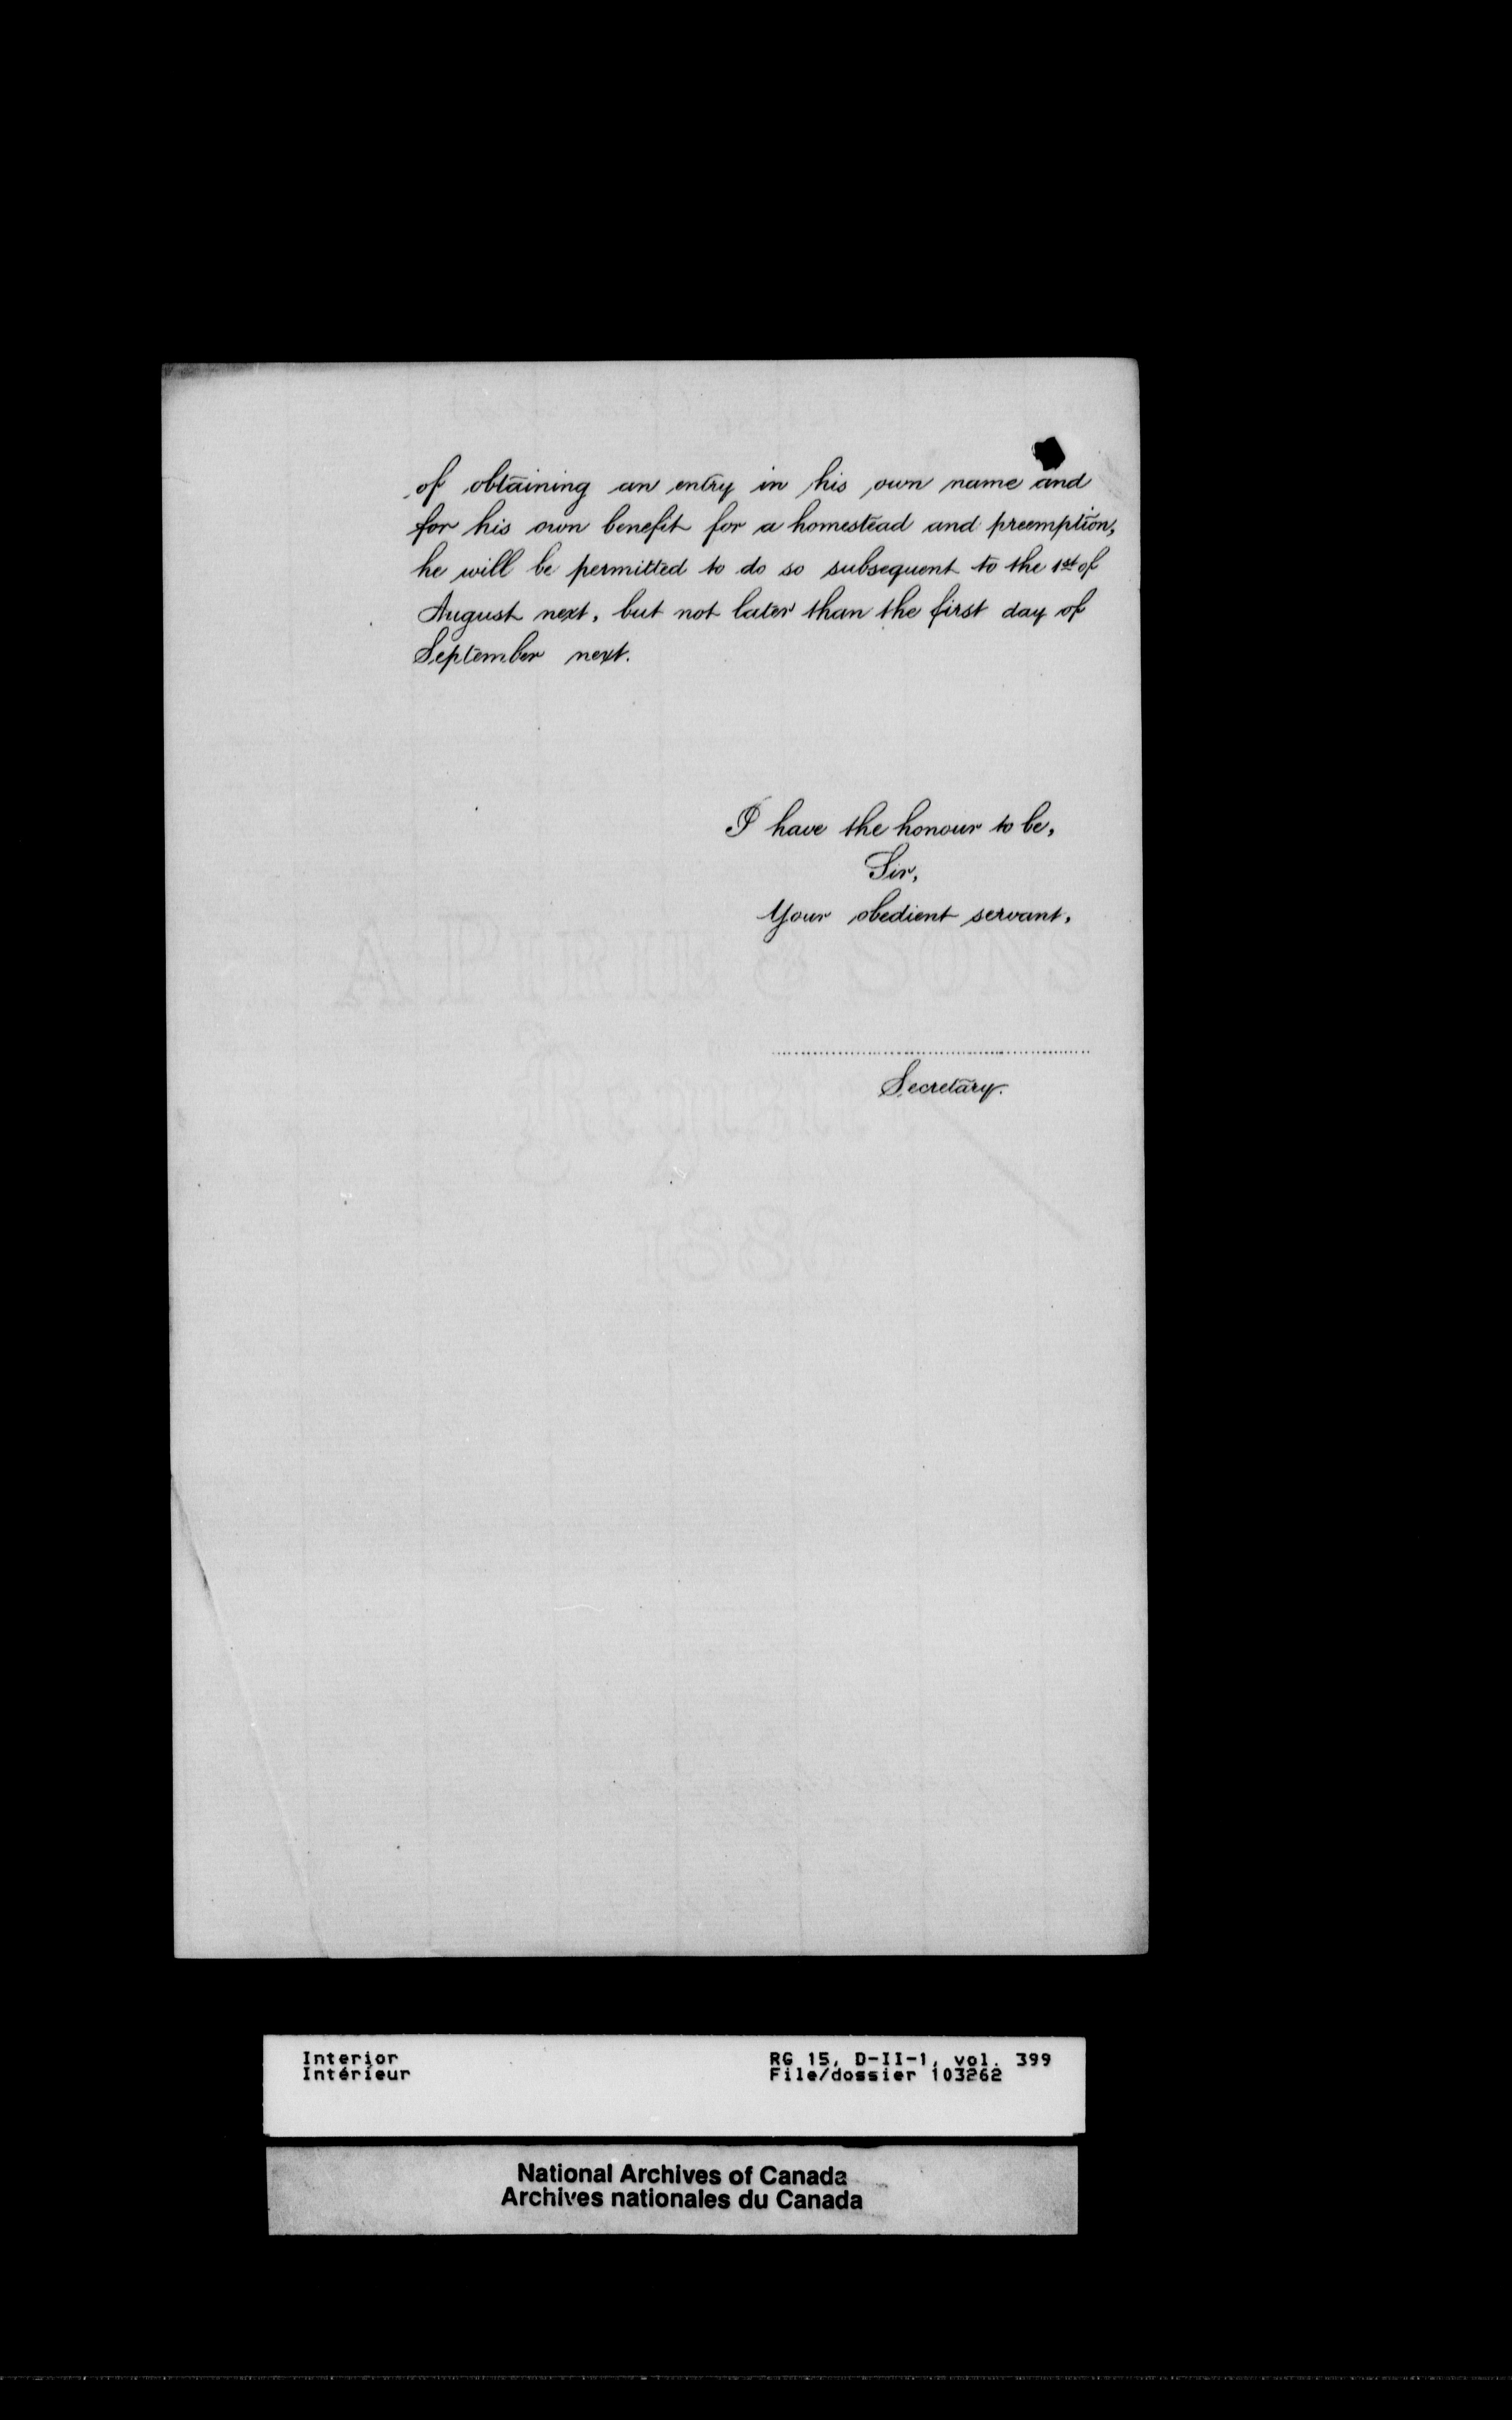 of obtaining an entry in his own name and
for his own benefit for a homestead and preemption,
he will be permitted to do so subsequent to the 1st of
August next, but not later than the first day of
September next.
I have the honour to be,
Sir,
Your obedient servant,
A PIRIE & SONS
Secretary.
Register
Interior
Intérieur
RG 15, D-II-1, vol. 399
File/dossier 103262
National Archives of Canada
Archives nationales du Canada